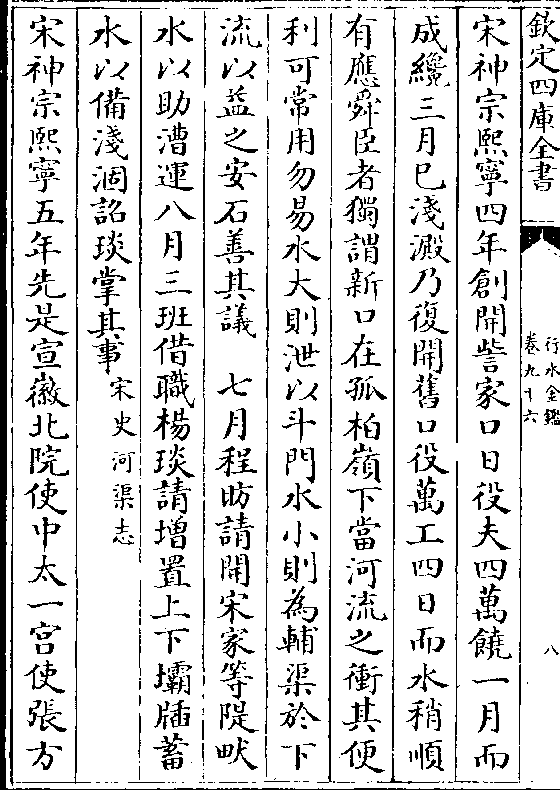 欽定四庫全書
行水金鑑
卷九十六
八
宋神宗熙寧四年創開訾家口日役夫四萬饒一月而
成纔三月已淺澱乃復開舊口役萬工四日而水稍順
有應舜臣者獨謂新口在孤柏嶺下當河流之衝其便
利可常用勿易水大則泄以斗門水小則為輔渠於下
流以益之安石善其議　七月程昉請開宋家等隄畎
水以助漕運八月三班借職楊琰請增置上下壩牐蓄
水以備淺涸詔琰掌其事宋史河渠志
宋神宗熙寧五年先是宣徽北院使中太一宮使張方